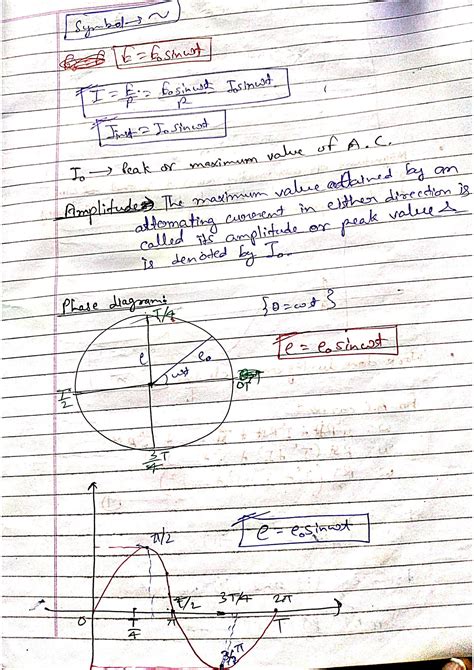 Symbol → ~
E = E₀sinωt
I = E/R = E₀sinωt/R I₀sinωt
Iinst = I₀sinωt
I₀ → Peak or maximum value of A.C.
Amplitude → The maximum value obtained by an
alternating current in either direction is
called its amplitude or peak value &
is denoted by I₀.
Phase diagram:
T/4
{θ = ωt}
e = e₀sinωt
e
e₀
ωt
T/2
0
T
3T/4
e = e₀sinωt
π/2
T/2
3T/4
2π
0
T/4
A
T